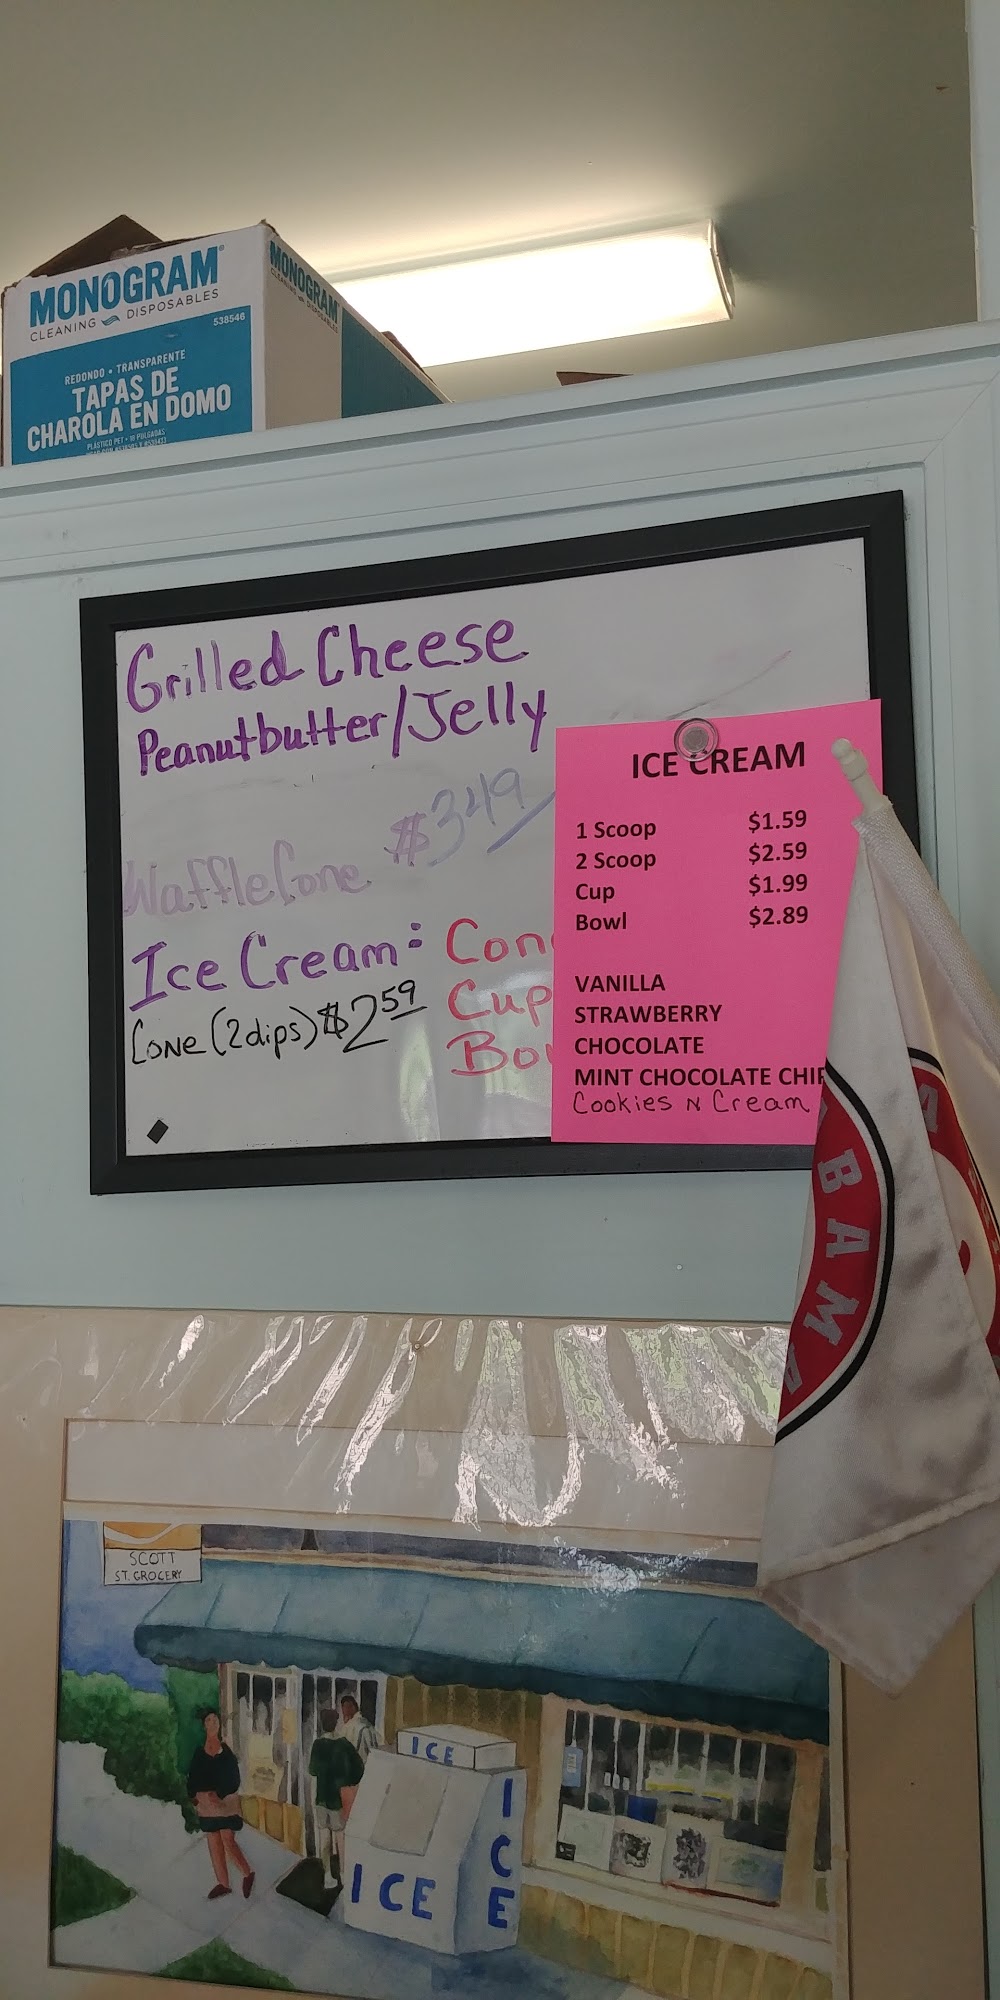 MONOGRAM
CLEANING DISPOSABLES
538546
REDONDO • TRANSPARENTE
TAPAS DE
CHAROLA EN DOMO
PLÁSTICO PET • 18 PULGADAS
MONOGRAM
Grilled Cheese
Peanutbutter/Jelly
Waffle Cone $3.49
Ice Cream: Con
Cone (2dips) $2.59 Cup
Bo
ICE CREAM
1 Scoop $1.59
2 Scoop $2.59
Cup $1.99
Bowl $2.89
VANILLA
STRAWBERRY
CHOCOLATE
MINT CHOCOLATE CHIP
Cookies N Cream
BAMA
SCOTT
ST. GROCERY
ICE
ICE
ICE